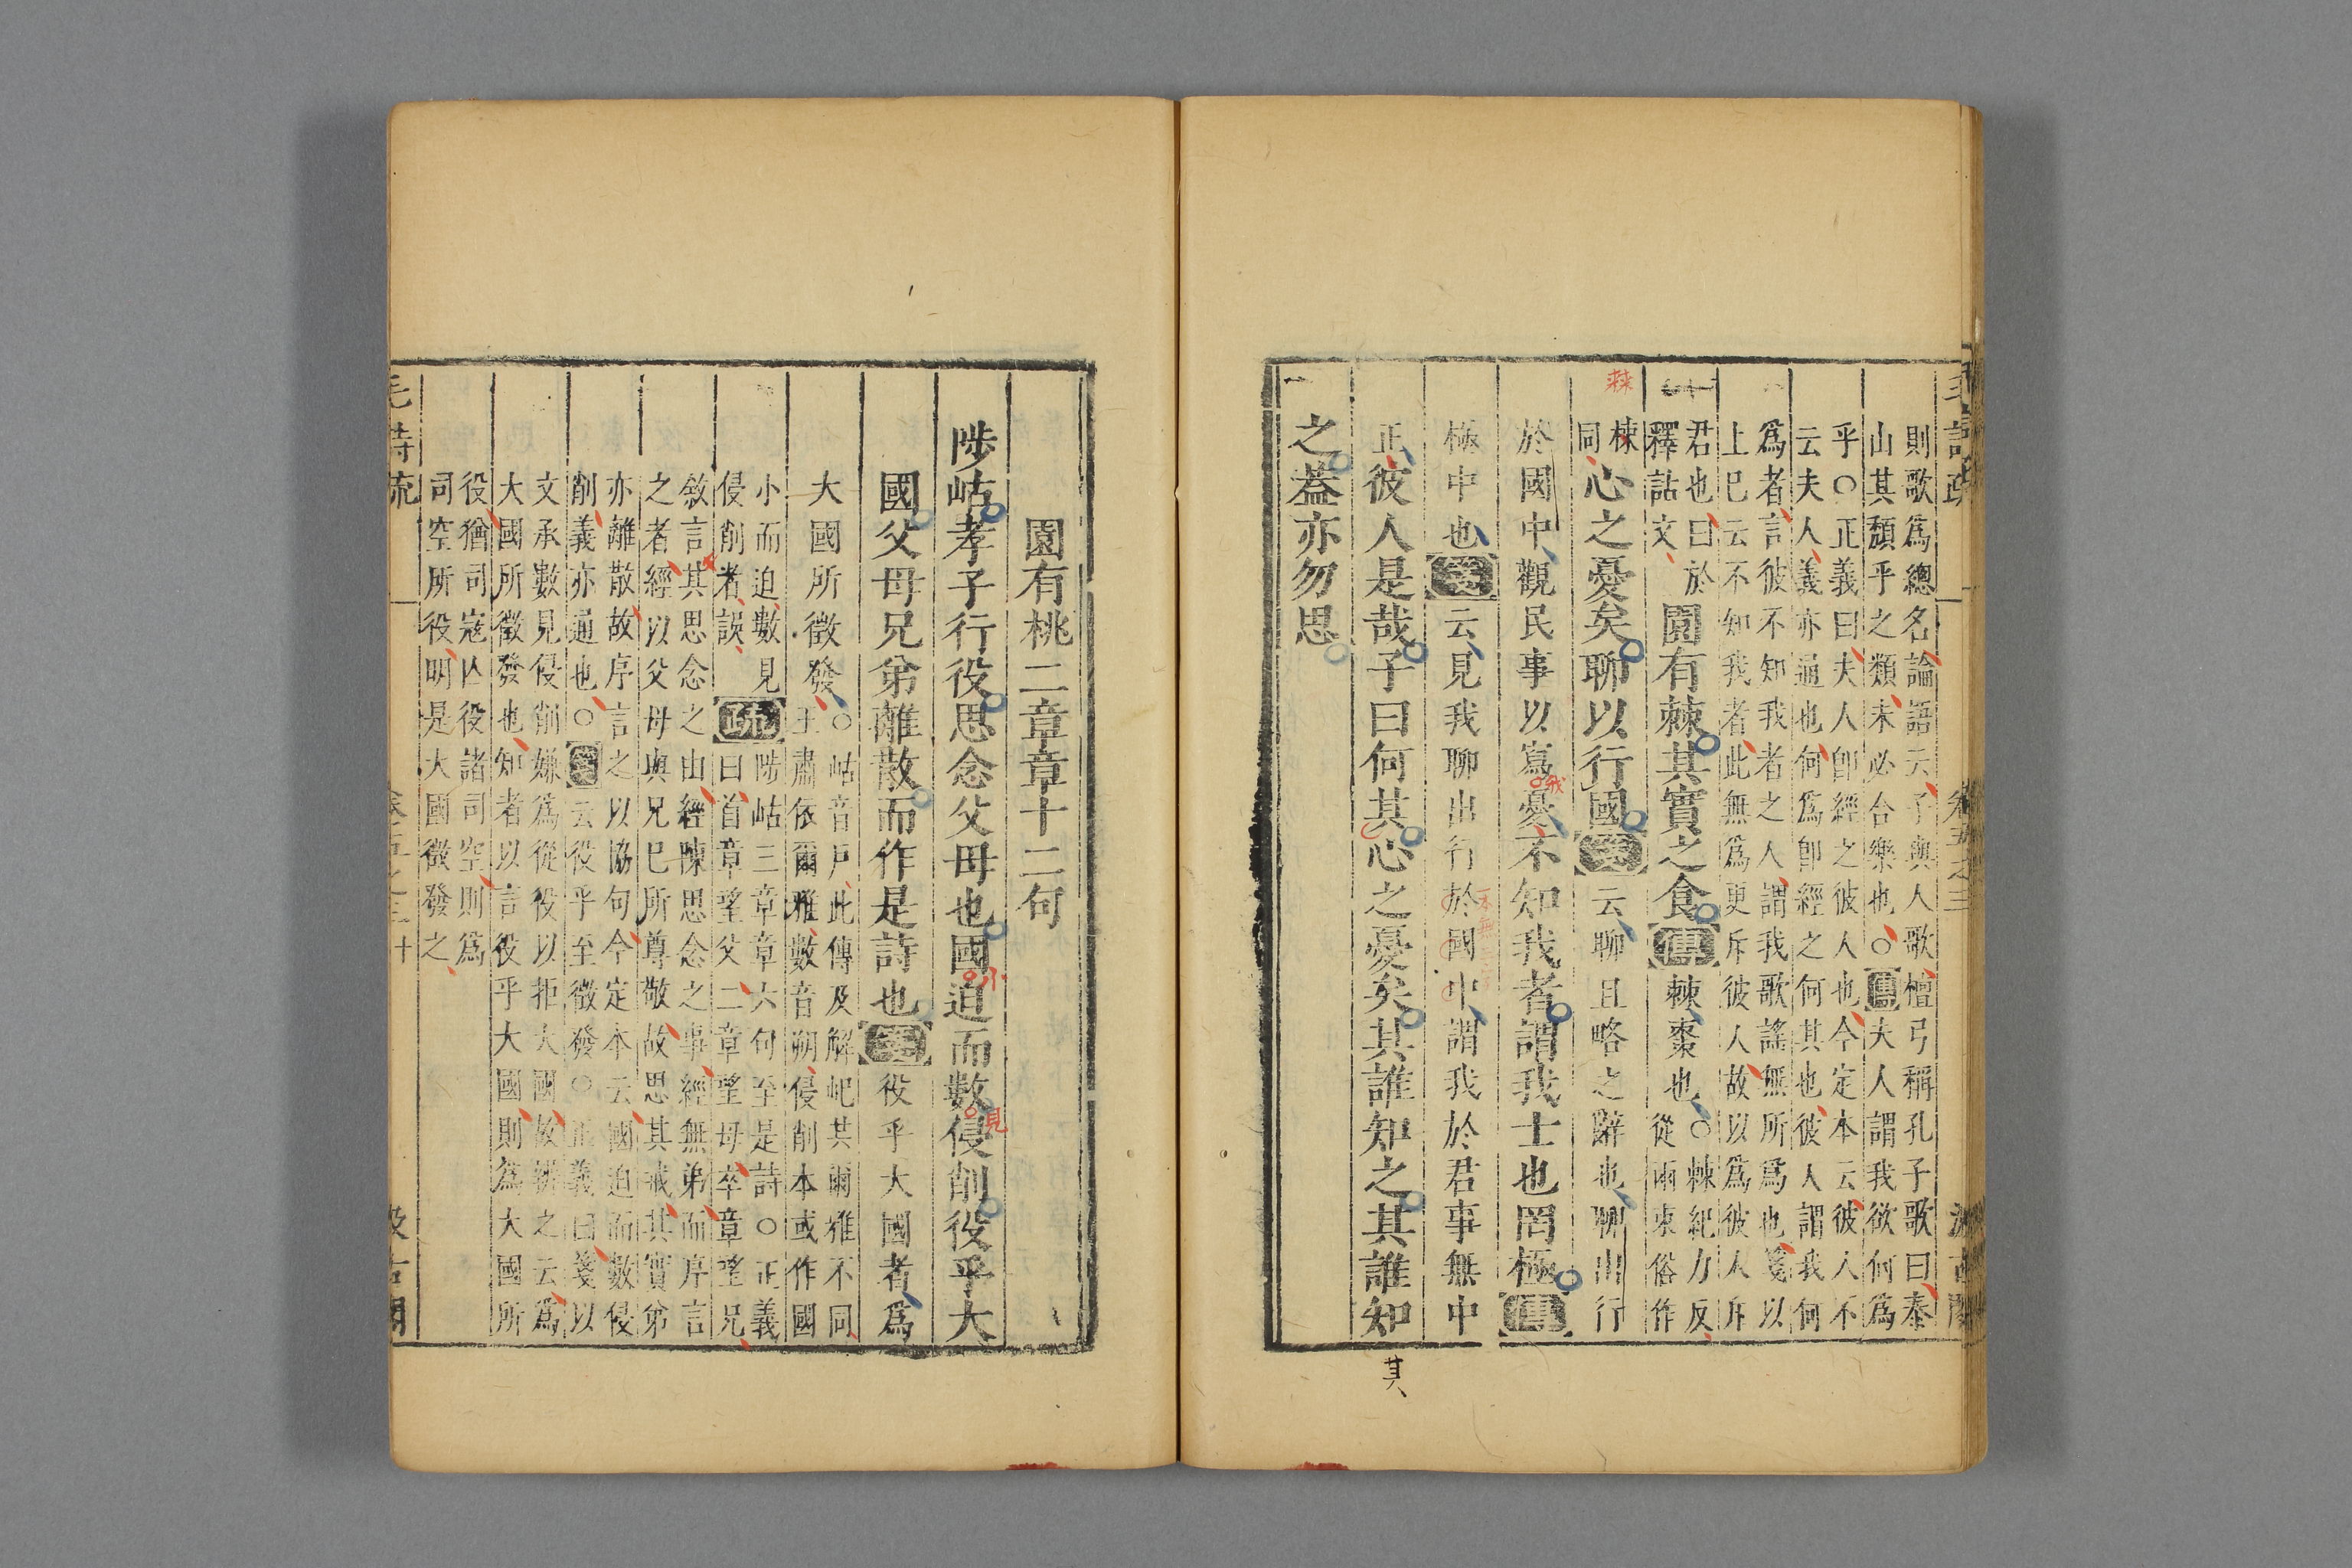 毛詩疏 卷五之三 汲古閣
則歌爲總名論語云子與人歌檀弓稱孔子歌曰泰
山其頹乎之類未必合樂也○傳夫人謂我欲何爲
乎○正義曰夫人卽經之彼人也今定本云彼人不
云夫人義亦通也何爲卽經之何其也彼人謂我何
爲者言彼不知我者之人謂我歌謠無所爲也箋以
上巳云不知我者此無爲更斥彼人故以爲彼人斥
君也曰於
釋詁文
園有棘其實之食傳棘棗也○棘紀力反
從兩朿俗作
棘
梀
同
心之憂矣聊以行國箋云聊且略之辭也聊出行
於國中觀民事以寫憂不知我者謂我士也罔極傳
我
極中也箋云見我聊出行於國中謂我於君事無中
一本無
正彼人是哉子曰何其心之憂矣其誰知之其誰知
其
之蓋亦勿思
園有桃二章章十二句
陟岵孝子行役思念父母也國迫而數侵削役乎大
小
見
國父母兄弟離散而作是詩也箋役乎大國者爲
大國所徵發○岵音戸此傳及解屺其爾雅不同
王肅依爾雅數音朔侵削本或作國
小而迫數見
侵削者誤
疏陟岵三章章六句至是詩○正義
曰首章望父二章望母卒章望兄
敘言其思念之由經陳思念之事經無弟而序言
之者經以父母與兄巳所尊敬故思其戒其實弟
亦離散故序言之以協句今定本云國迫而數侵
削義亦通也○箋云役乎至徵發○正義曰箋以
文承數見侵削嫌爲從役以拒大國故辨之云爲
大國所徵發也知者以言役乎大國則爲大國所
役猶司寇亾役諸司空則爲
司空所役明是大國徵發之
毛詩疏 卷五之三 十 汲古閣